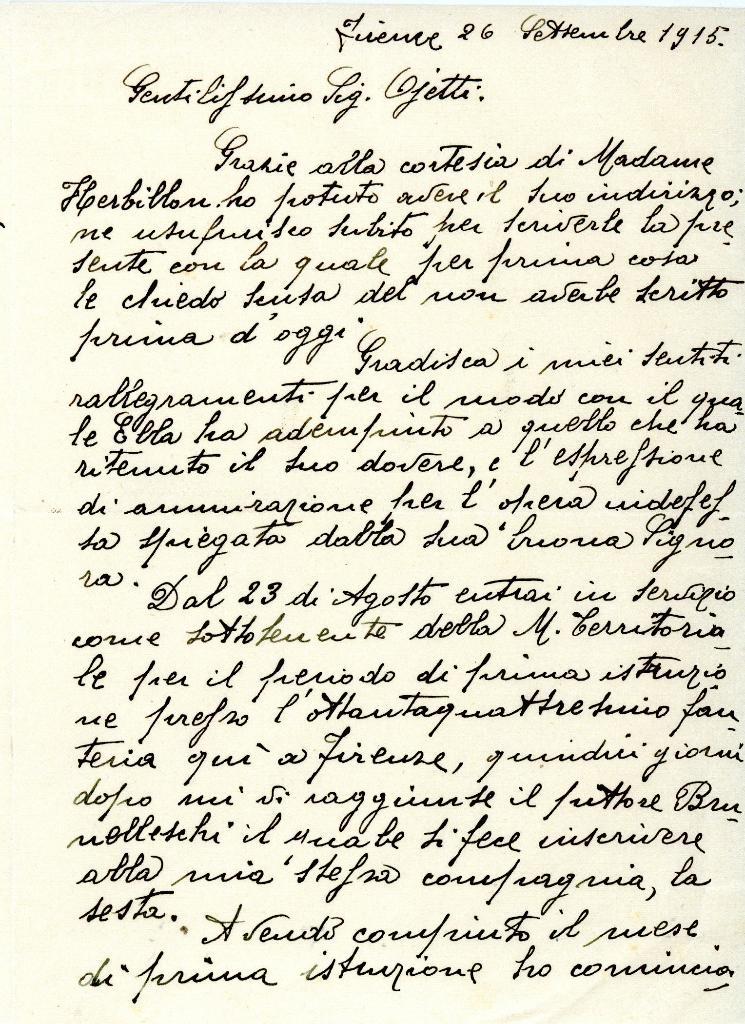 Firenze 26 Settembre 1915.
Gentilissimo Sig. Ojetti.
Grazie alla cortesia di Madame
Herbillon ho potuto avere il suo indirizzo;
ne usufruisco subito per scriverle la pre=
sente con la quale per prima cosa
le chiedo scusa del non averle scritto
prima d'oggi.
Gradisca i miei sentiti
rallegramenti per il modo con il qua=
le Ella ha adempiuto a quello che ha
ritenuto il suo dovere, e l'espressione
di ammirazione per l'opera indefes
sa spiegata dalla sua buona Signo=
ra.
Dal 23 di Agosto entrai in servizio
come sottotenente della M. Territoria=
le per il periodo di prima istruzio
ne presso l'ottantaquattresimo fan=
teria quì a Firenze, quindici giorni
dopo mi vi raggiunse il pittore Bru=
nelleschi il quale si fece inscrivere
alla mia stessa compagnia, la
sesta.
Avendo compiuto il mese
di prima istruzione ho comincia=